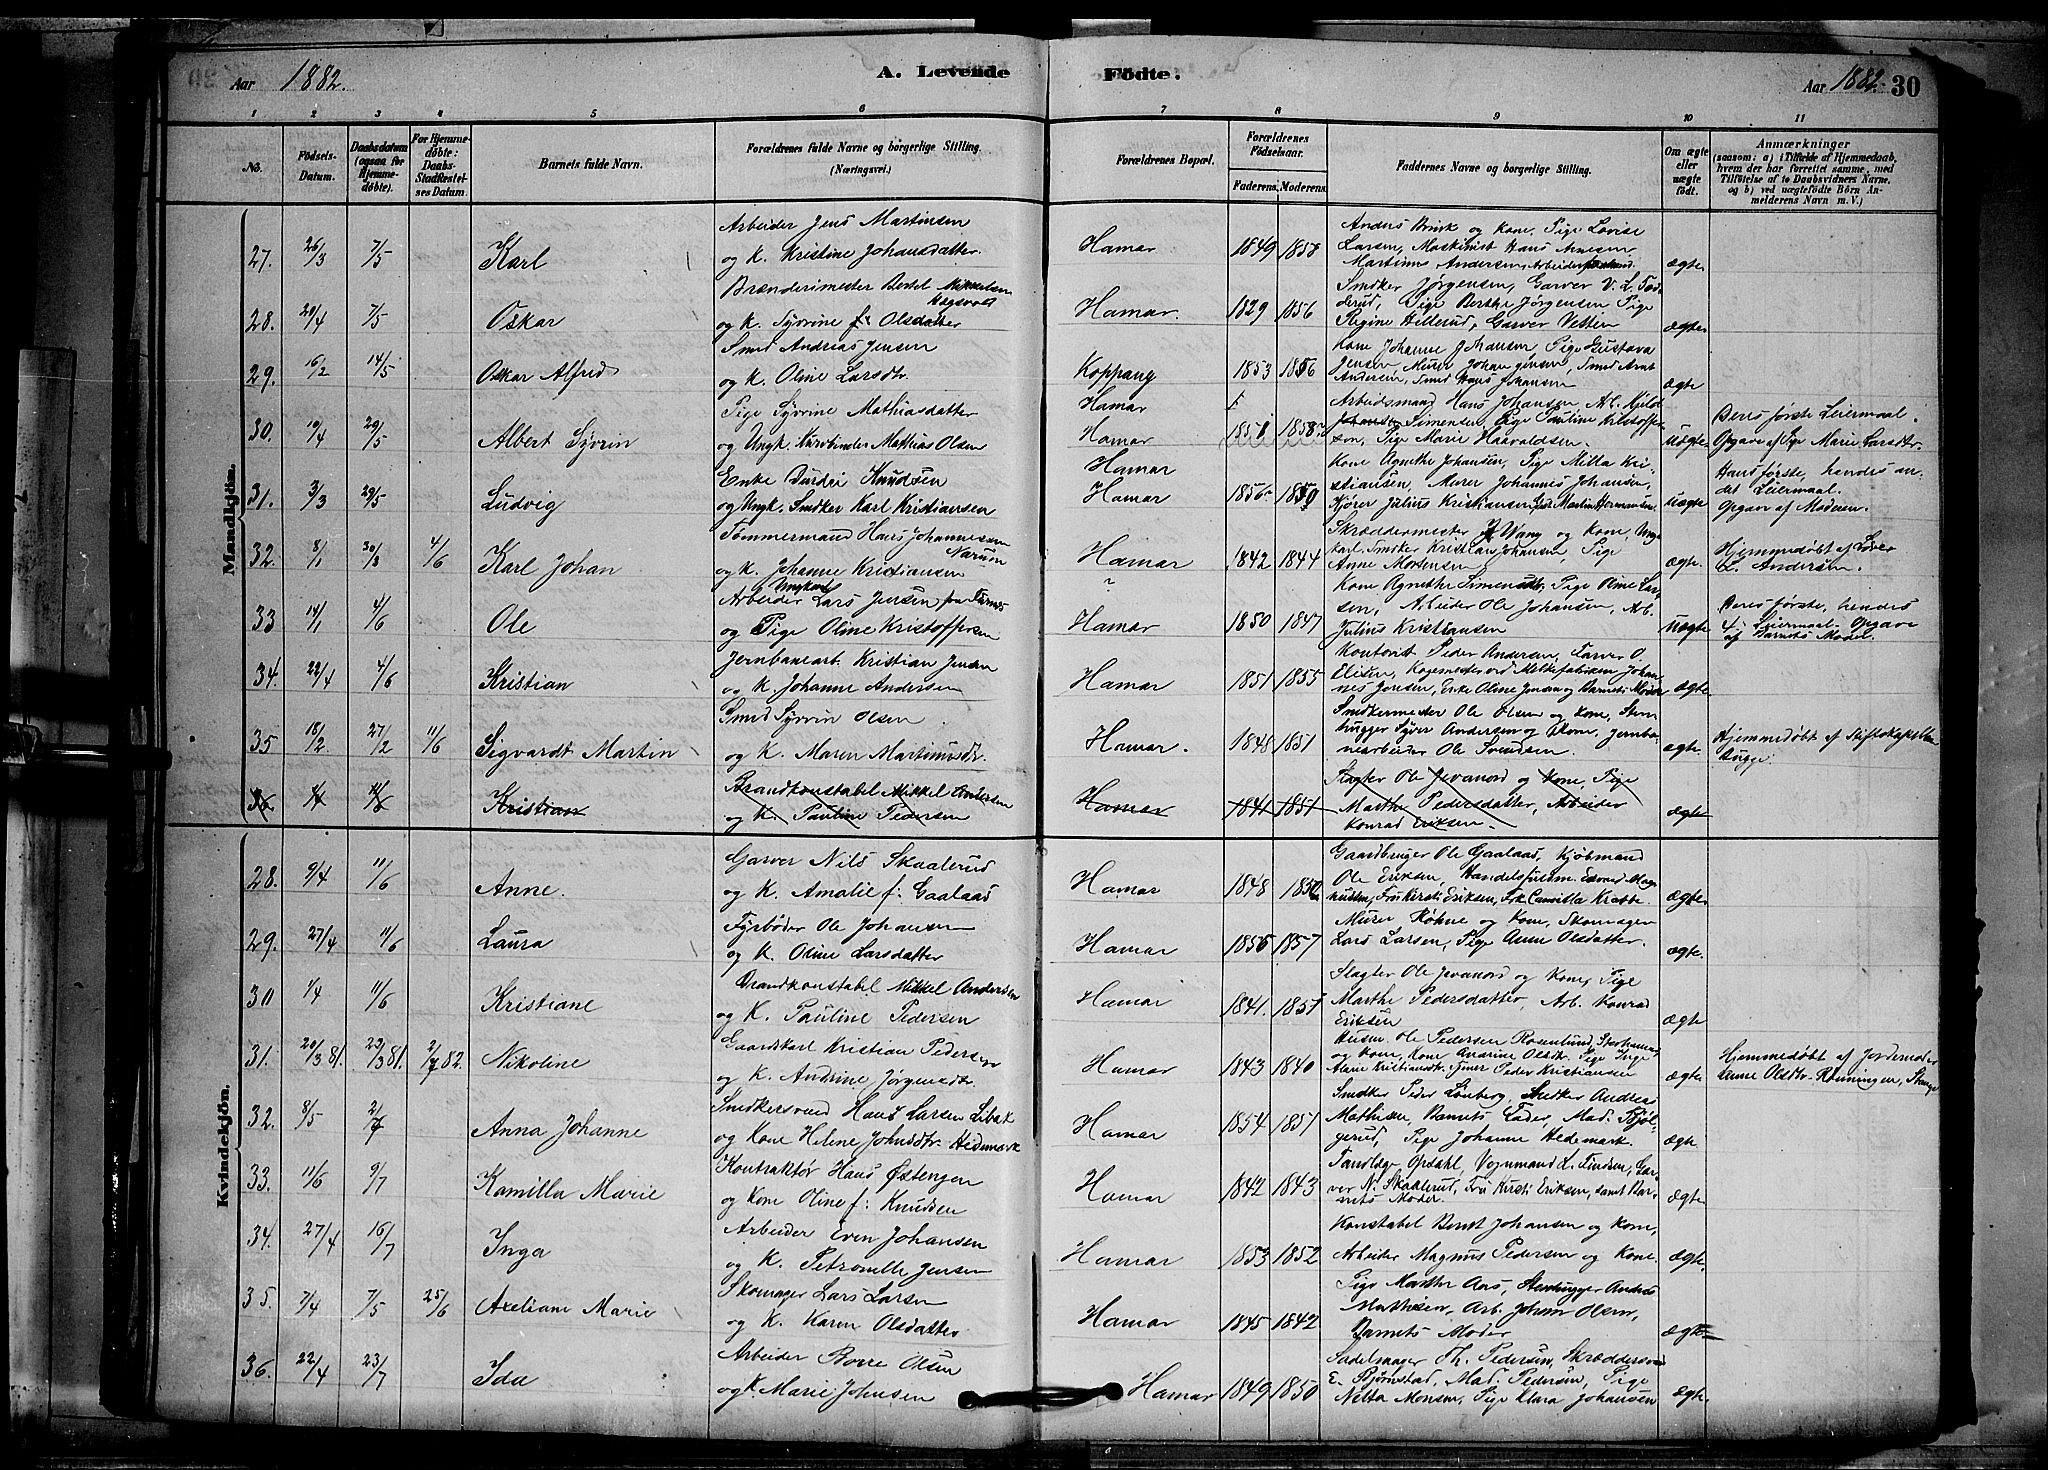 Aar 1882.
A. Levende Födte.
Aar 1882. 30
1 2 3 4 5 6 7 8 9 10 11
No.
Födsels-Datum.
Daabsdatum (ogsaa for Hjemmedöbte).
For Hjemmedöbte: Daabs-Stadfæstelses Datum.
Barnets fulde Navn.
Forældrenes fulde Navne og borgerlige Stilling. (Næringsvei.)
Forældrenes Bopæl.
Forældrenes Födselsaar.
Faderens. Moderens.
Faddernes Navne og borgerlige Stilling.
Om ægte eller uægte födt.
Anmærkninger (saasom: a) i Tilfælde af Hjemmedaab, hvem der har forrettet samme, med Tilföielse af to Daabsvidners Navne, og b) ved uægtefödte Börn Anmelderens Navn m. V.)
Mandkjön.
Arbeider Jens Martinsen
27. 26/3 7/5 Karl og K. Kristine Johansdatter. Hamar 1849 1858
Anders Brink og Kone, Pige Lovise
Larsen, Maskinist Hans Arnesen
Martinus Andersen, Arbeider ægte
Brænderimester Bertel Mikkelsen
28. 20/4 7/5 Oskar og K. Syvrine f. Olsdatter Hamar. 1829 1856
Smdker Jørgensen, Garver V. L.
Pige Berthe Jørgensen Pige
Regine Hillerud, Garver Vettin ægte
Smed Andreas Jensen
29. 16/2 14/5 Oskar Alfred og K. Oline Larsdtr. Koppang 1853 1856
Kone Johanne Johansen, Pige Gustava
Jensen, Murer Johan Jensen, Smed Arnt
Andersen, Smed Hans Johansen ægte
Pige Syvrine Mathiasdatter Hamar
30. 10/4 29/5 Albert Syvrin og Ungk. Mathias Olsen Hamar 1851 1858
Arbeidsmand Hans Johansen Arb.
Simensen, Pige Pauline Kristoffersen, Pige Marie Haavaldsen. uægte
Deres første Leiermaal.
Opgave af Pige Marie Larsdtr.
Enke Knudsen Hamar
31. 3/3 29/5 Ludvig og Ungk. Smdker Karl Kristiansen Hamar 1856 1850
Kone Agnethe Johansen, Pige Milla Kristiansen, Murer Johannes Johansen,
Kjører Julius Kristiansen Martin Hermansen uægte
Hans første, hendes andet Leiermaal.
Opgave af Moderen.
Tømmermand Hans Johannessen Narum
32. 8/1 30/3 4/6 Karl Johan og K. Johanne Kristiansen Hamar 1842 1844
Skræddermester Wang og Kone, Ungkarl Smdker Kristian Johansen, Pige
Anne Mortensen ægte
Hjemmedøbt af Lærer
L. Andersen.
Ungkarl
Arbeider Lars Jensen fra
33 14/1 4/6 Ole og Pige Oline Kristoffersen Hamar 1850 1847
Kone Agnethe Simensdtr. Pige Oline Larsen, Arbeider Ole Johansen, Arb.
Julius Kristiansen uægte
Deres første, hendes
4. Leiermaal. Opgave
af Barnets Moder.
Jernbanearb. Kristian Jensen
34. 22/4 4/6 Kristian og K. Johanne Andersen Hamar 1851 1855
Kontorist Peder Andersen, Farver O.
Elisen, Kogemester ved Melkefabriken Johannes Jensen, Enke Oline Jensen og Barnets Moder ægte
Smed Syvrin Olsen
35 18/2 27/2 11/6 Sigvardt Martin og K. Maren Martinusdtr. Hamar. 1848 1851
Smdkermester Ole Olsen og Kone, Stenhugger Syver Andersen og Kone, Jernbanearbeider Ole Svendsen. ægte
Hjemmedøbt af Stiftskapellan
Bugge
Brandkonstabel Mikkel Andersen
36 1/4 11/6 Kristian og K. Pauline Pedersen Hamar 1841 1851
Slagter Ole Jevanord og Kone, Pige
Marthe Pedersdatter, Arbeider
Konrad Eriksen. ægte
Kvindekjön.
Garver Nils Skaalerud
28. 9/4 11/6 Anne. og K. Amalie f. Gaalaas Hamar 1848 1850
Gaardbruger Ole Gaalaas, Kjøbmand
Ole Eriksen, Handelsfuldm. Edvard Magnussen, Fru Kirsti Eriksen, Frk Camilla Krabbe. ægte
Fyrbøder Ole Johansen
29. 27/4 11/6 Laura og K. Oline Larsdatter Hamar 1856 1857
Murer Røhne og Kone, Skomager
Lars Larsen, Pige Anne Olsdatter. ægte.
Brandkonstabel Mikkel Andersen
30 1/4 11/6 Kristiane og K. Pauline Pedersen Hamar 1841. 1851
Slagter Ole Jevanord og Kone, Pige
Marthe Pedersdatter, Arb. Konrad
Eriksen ægte
Gaardskarl Kristian Pedersen
31. 20/3 81. 23/3 81. 2/7 82. Nikoline og K. Andrine Jørgensdtr. Hamar 1843 1840
Husm. Ole Pedersen Rosenlund,
og Kone, Kone Anarine Olsdtr. Pige Inge
Marie Kristiansdtr. Peder Kristiansen ægte
Hjemmedøbt af Jordemoder
Anne Olsdtr. Rønningen, Stange
Smdkersvend Hans Larsen Libak
32. 8/5 2/7 Anna Johanne og Kone Helene Johnsdtr. Hedemark Hamar 1854 1851
Smdker Peder Lønberg, Smdker Andreas
Mathisen, Barnets Fader, Mad.
Pige Johanne Hedemark. ægte
Kontraktør Hans Østengen
33. 11/6 9/7 Kamilla Marie og Kone Oline f. Knudsen Hamar 1842 1843
Tandlæge Opdahl, Vognmand L. Findsen, Garver N. Skaalerud, Fru Kirsti Eriksen, samt Barnets Moder. ægte
Arbeider Even Johansen
34. 27/4 16/7 Inga og K. Petronelle Jensen Hamar 1853 1852
Konstabel Bernt Johansen og Kone,
Arbeider Magnus Pedersen og Kone. ægte.
Skomager Lars Larsen
35. 7/4 7/5 25/6 Axeliane Marie og K. Karen Olsdatter Hamar 1845 1842
Pige Marthe Aas, Stenhugger Andreas
Mathisen, Arb. Johan Olsen,
Barnets Moder ægte
Arbeider Borre Olsen
36. 22/4 23/7 Ida og K. Marie Johnsen Hamar 1849 1850
Sadelmager Th. Pedersen, Skræddersvend
E. Bjørnstad, Mad. Pedersen, Pige
Netta Monsen, Pige Klara Johansen ægte.